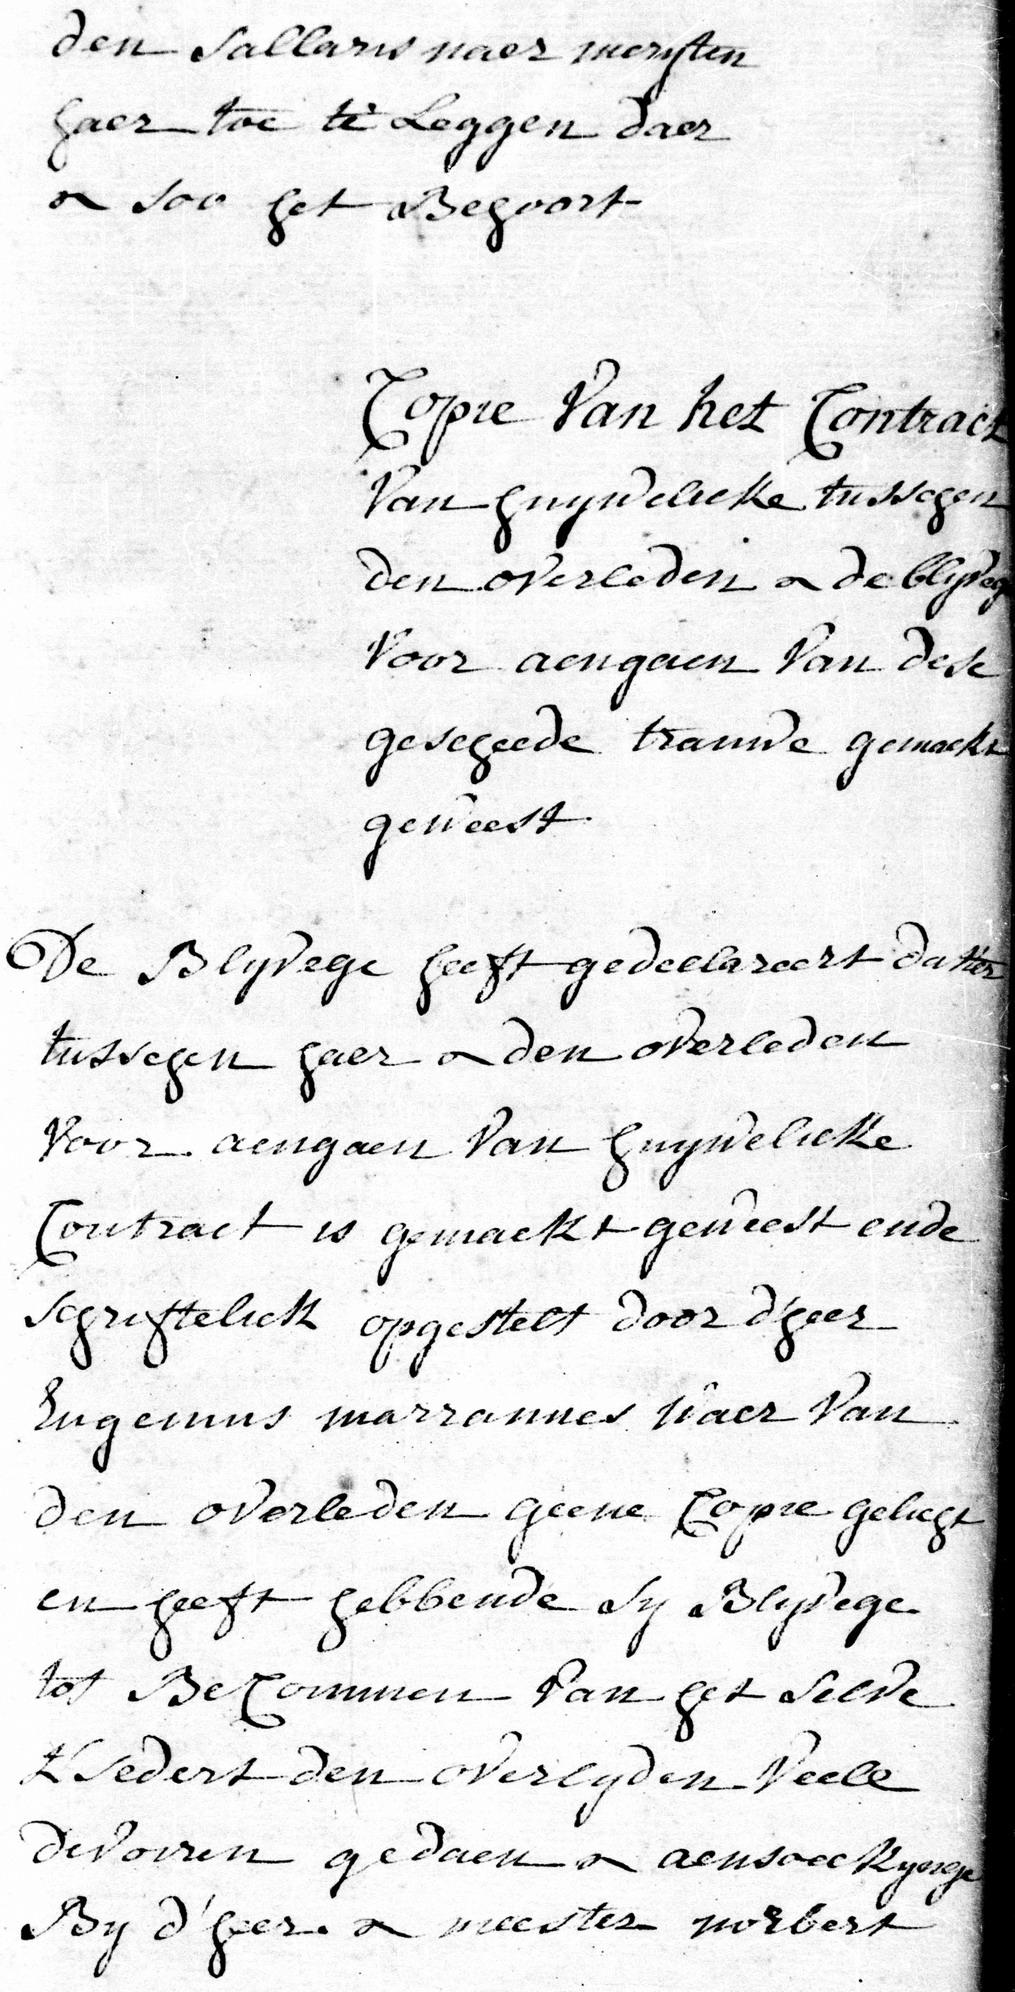 den Sallaris naer meryten
haer toe te Leggen daer
& soo het Behoort
Copie Van het Contract
Van huywelicke tusschen
den overleden & de blyvege
Voor aengaen Van dese
gescheede trauwe gemackt
geweest
De Blyvege heeft gedeelareert datter
tusschen haer & den overleden
Voor aengaen Van huywelicke
Contract is gemackt geweest ende
schriftelick opgestelt door d'heer
Eugenius marrannes waer Van
den overleden geene Copie gelicht
en heeft hebbende sy Blyvege
tot BeCommen Van het selve
t'sedert den overlyden Veele
devoiren gedaen & aensoeckynge
By d'heer & meester norbert